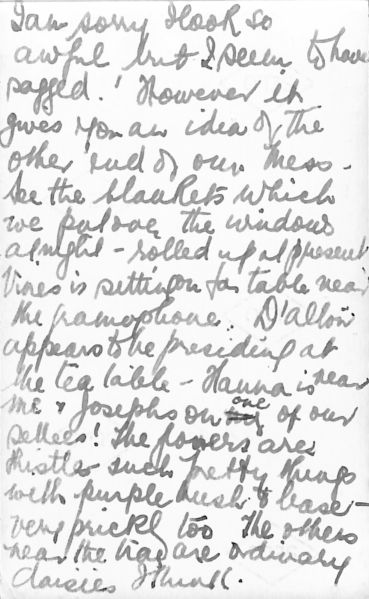 I am sorry I look so
awful but I seem to have
sagged! However it
gives you an idea of the
other end of our Mess -
See the blankets which
we put over the windows
at night - rolled up at present
Vines is sitting on far table near
the gramophone. D'alton
appears to be presiding at
the tea table - Hanna is near
me & Josephs on one of our
settees! The flowers are
thistles such pretty things
with purple at base -
very prickly too The others
near the tray are ordinary
daisies I think.